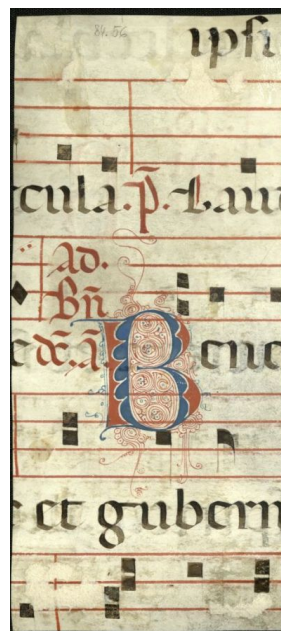 84.56
ipſi
cula. p̄. Lau
ad.
Bn̄
Bene
et gubern